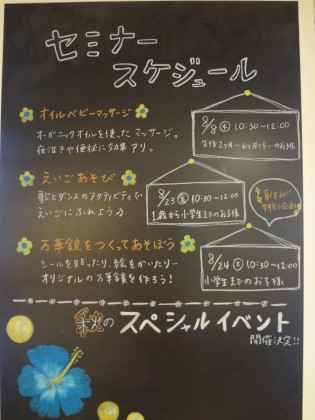 セミナー
スケジュール
オイルベビーマッサージ
オーガニックオイルを使ったマッサージ。
夜泣きや便秘に効果アリ。
8/8 ㊍ 10:30〜12:00
生後2ヶ月〜6ヶ月くらいのお子様
えいごあそび
歌とダンスのアクティビティで
えいごにふれよう♪
8/23 ㊎ 10:30〜12:00
1歳から小学生までのお子様
夏休み
特別企画
万華鏡をつくってあそぼう
シールを貼ったり、絵をかいたり…
オリジナルの万華鏡を作ろう!
8/24 ㊏ 10:30〜12:00
小学生までのお子様
秋のスペシャルイベント
開催決定!!